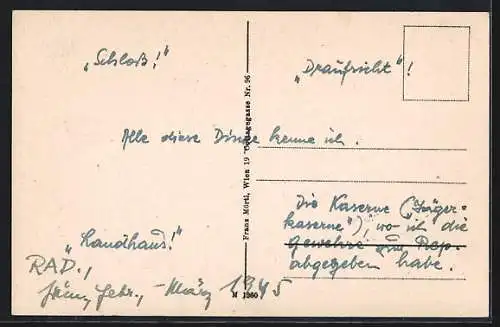 „Schloß!“
„Draufsicht“!
Alle diese Dinge kenne ich.
Die Kaserne („Jäger-
kaserne“), wo ich die
Gewehre zum Rep.
abgegeben habe.
„Landhaus!“
RAD.,
Febr., - März 1945
Franz Mörtl, Wien 19 Grinzingerasse Nr. 96
M 1260